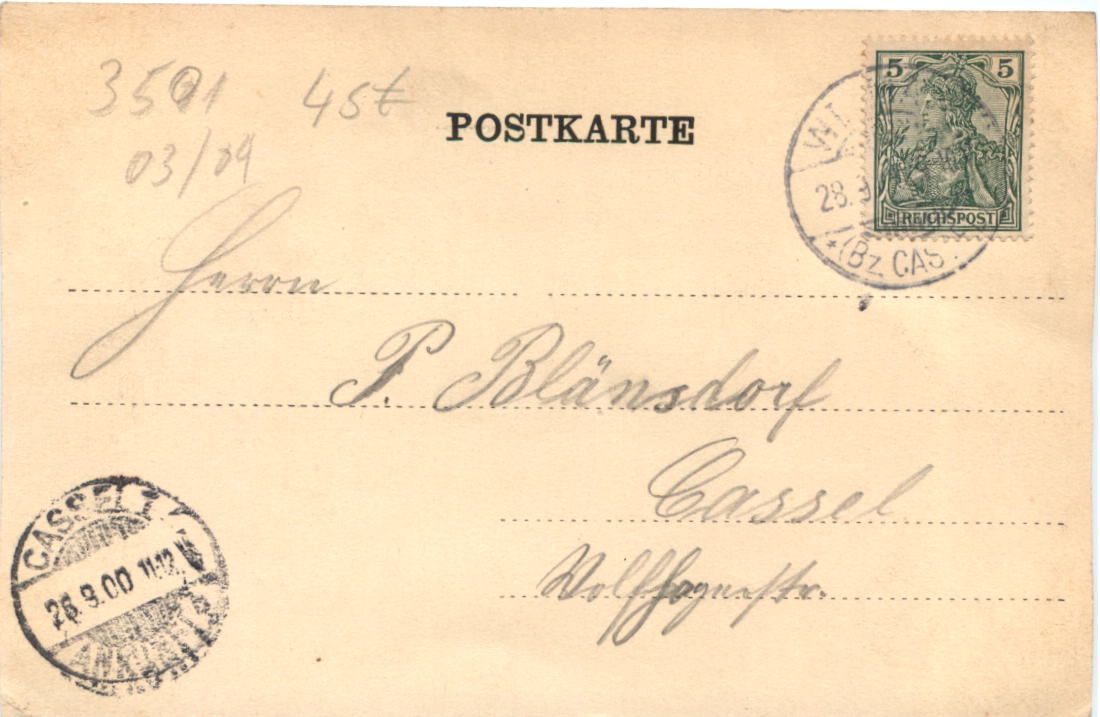 3501 4st
03/09
POSTKARTE
5 5
REICHSPOST
28.
*(Bz. CAS
Herrn
P. Blänsdorf
Cassel
Wolfhagerstr.
CASSEL 1
9.00 11-12 V
ANKUNFT